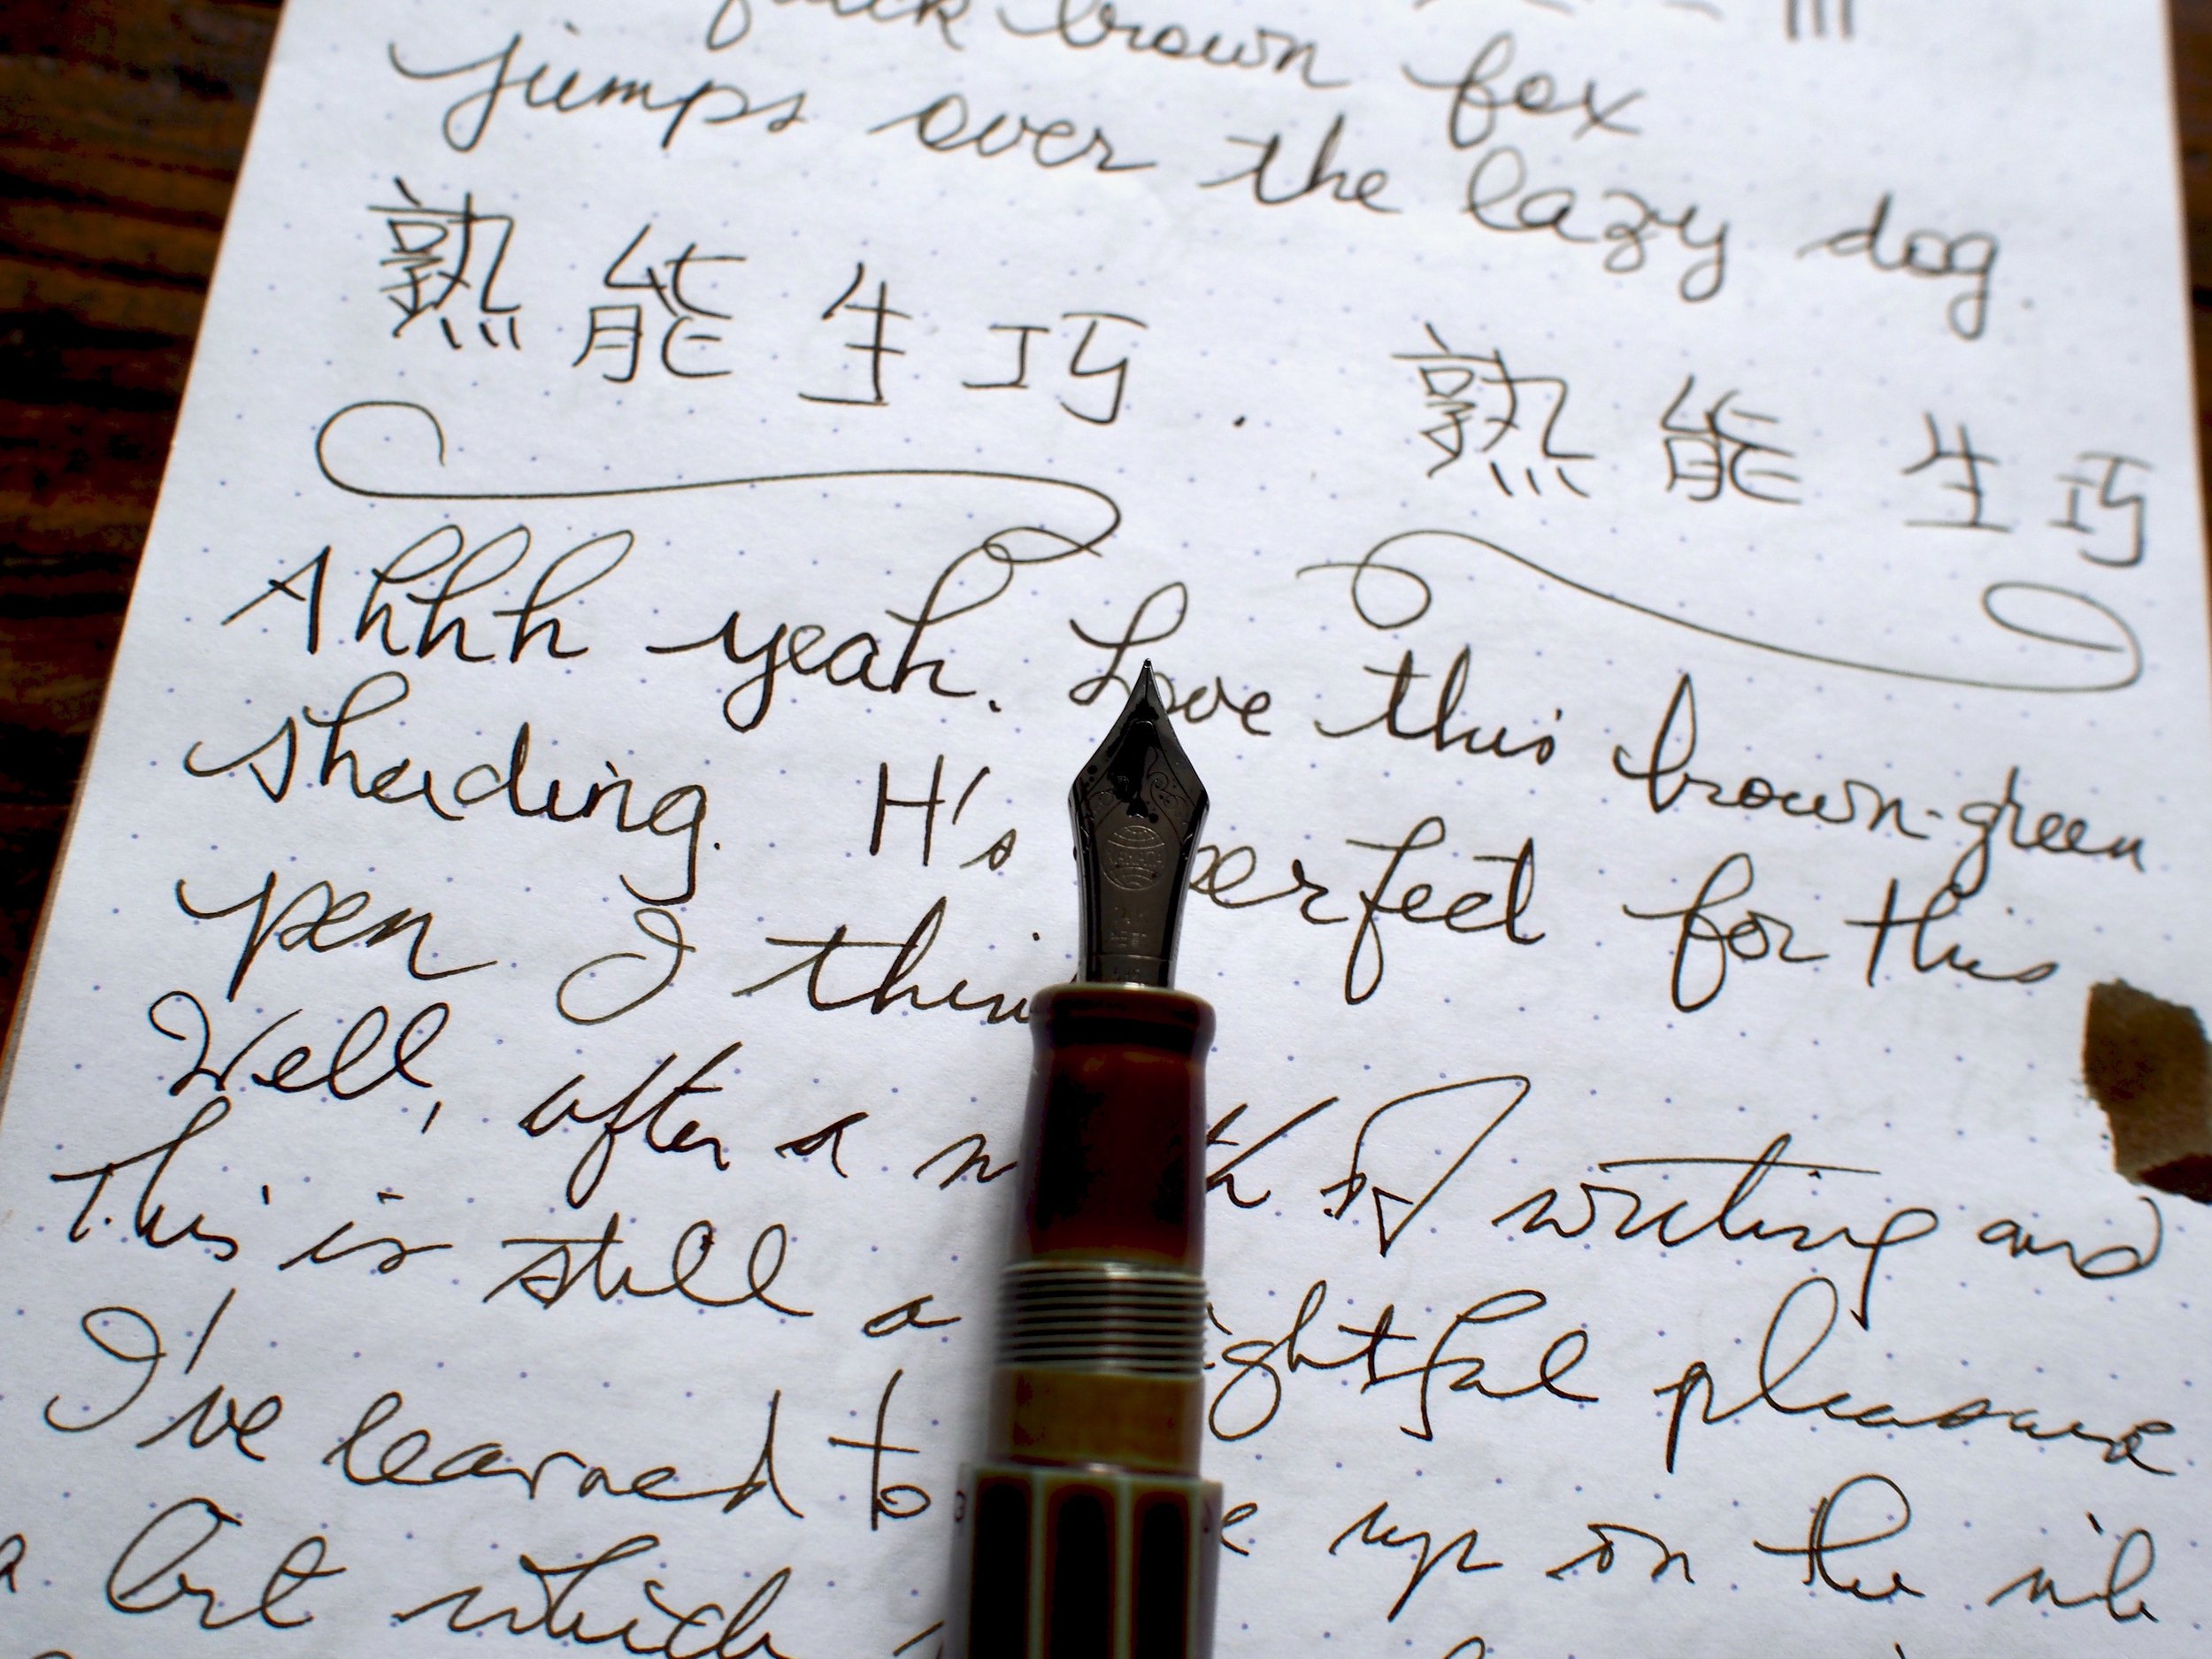 brown fox
jumps over the lazy dog.
熟能生巧. 熟能生巧
Ahhh yeah. Love this brown-green
shading. It's perfect for this
pen I thin
Well, after a of writing and
This is still a pleasure
I've learned to up on the nib
a bit which